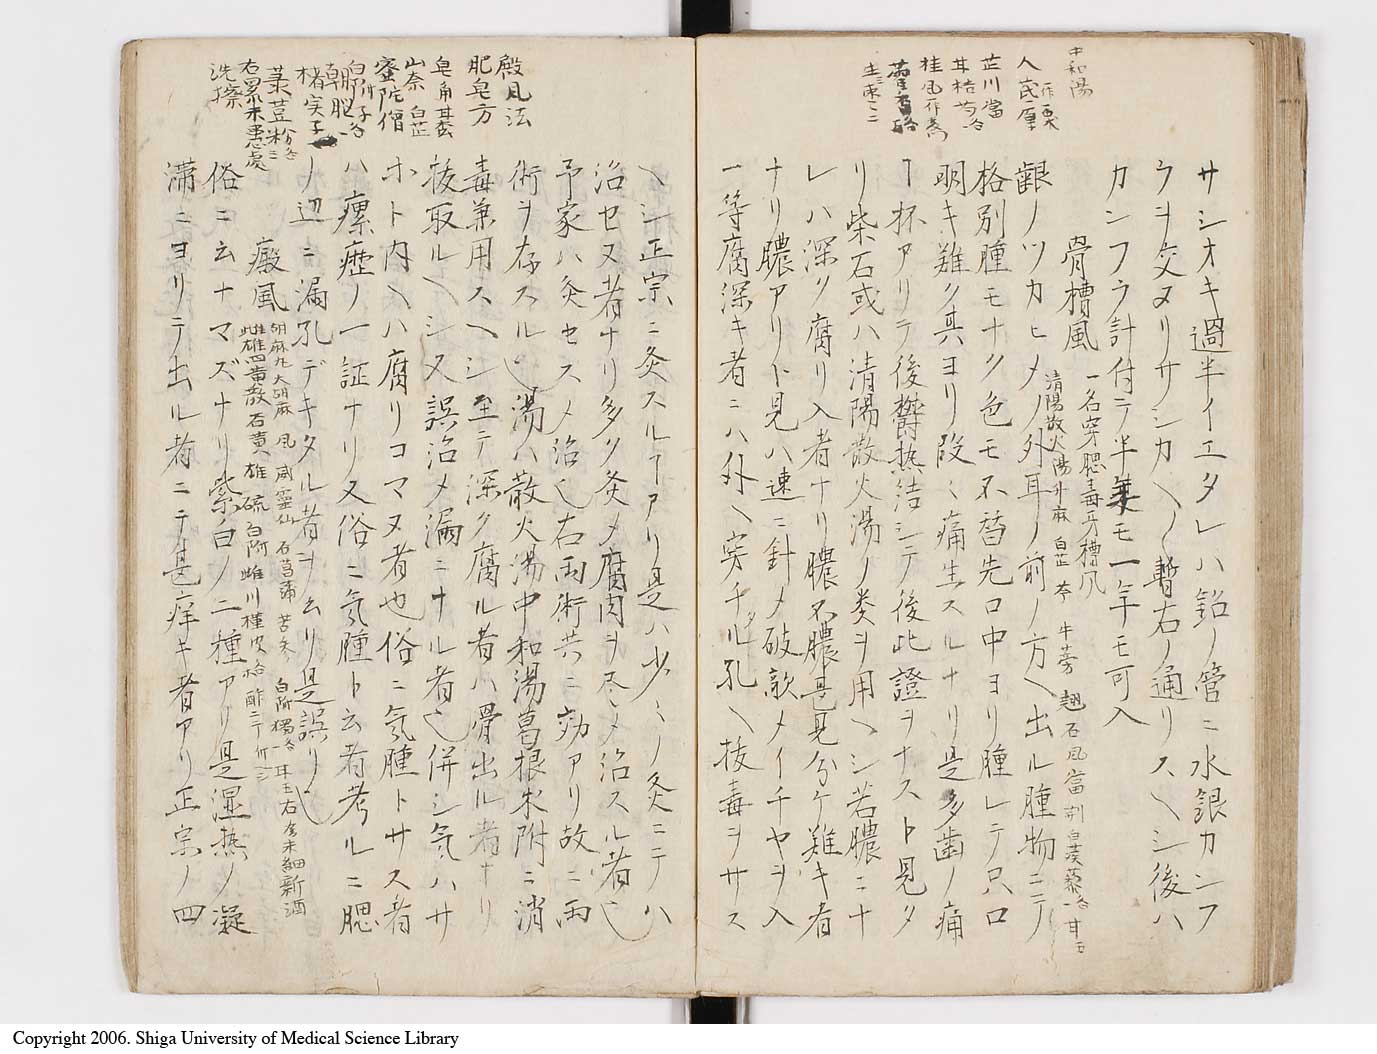 中和湯
人 芪 厚
芷 川 當
甘 桔 芍 各
サシオキ過半イエタレハ鉛ノ管ニ水銀カンフ
ウヲ交ヌリサシカヘ〱暫右ノ通リスヘシ後ハ
カンフラ計付テ半年モ一年モ可入
骨槽風
一名穿腮毒牙槽风
清陽散火湯 升麻 白芷 芩 牛蒡 翹 石 风 當 荊 白蒺藜 各一 甘五
齦ノツカヒメノ外耳ノ前ノ方ヘ出ル腫物ニテ
格別腫モナク色モ不替先口中ヨリ腫レテ只口
明キ難ク其ヨリ段〻痛生スルナリ是多歯ノ痛
ヿ杯アリテ後欝热結シテ後此證ヲナスト見タ
リ柴石或ハ清陽散火湯ノ类ヲ用ヘシ若膿ニナ
レハ深ク腐リ入者ナリ膿不膿甚見分ケ難キ者
ナリ膿アリト見ハ速ニ針〆破歒〆イチヤヲ入
一等腐深キ者ニハ外ヘ穿チタル孔ヘ抜毒ヲサス
殿风法
肥皂方
皂角 甘 蚕
山奈 白芷
蜜陀僧
白附子
朝脳 各
楮实子
菉荳粉
右四味末患處
洗擦
ヘシ正宗ニ灸スルヿアリ是ハ少〻ノ灸ニテハ
治セヌ者ナリ多ク灸〆腐肉ヲ尽〆治スル者也
予家ハ灸セス〆治也右両術共ニ効アリ故ニ両
術ヲ存スル也湯ハ散火湯中和湯葛根朮附ニ消
毒兼用スヘシ至テ深ク腐ル者ハ骨出ル者ナリ
抜取ルヘシ又誤治〆漏ニナル者也併シ気ハサ
ホト内ヘハ腐リコマヌ者也俗ニ気腫トサス者
ハ瘰癧ノ一証ナリ又俗ニ気腫ト云者考ルニ腮
ノ辺ニ漏孔デキタル者ヲ云リ是誤リ也
癜風
胡麻丸 大胡麻 风 威靈仙 石菖蒲 苦参 白附 獨 各一 甘五 右為末細新酒
雌雄四黄散 石黄 雄 硫 白附 雌 川槿皮 各 酢ニテ付ヘシ
俗ニ云ナマズナリ紫白ノ二種アリ是湿热ノ凝
滞ニヨリテ出ル者ニテ甚痒キ者アリ正宗ノ四
Copyright 2006. Shiga University of Medical Science Library